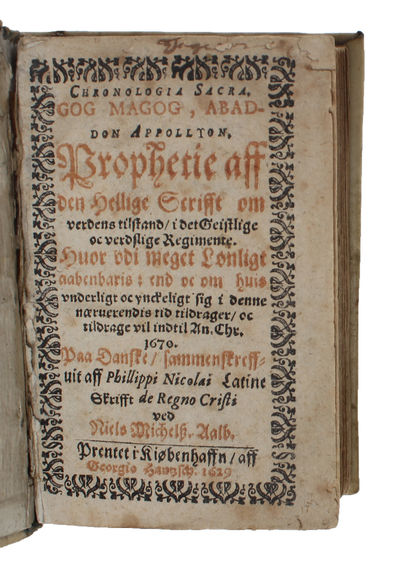 CHRONOLOGIA SACRA.
GOG MAGOG, ABAD-
DON APPOLLYON,
Prophetie aff
den Hellige Scrifft om
verdens tilstand / i det Geistlige
oc verdslige Regimente.
Huor vdi meget Lønligt
aabenbaris: end oc om huis
vnderligt oc ynckeligt sig i denne
næruerendis tid tildrager / oc
tildrage vil indtil An. Chr.
1670.
Paa Danske / sammenskreff-
uit aff Phillippi Nicolai Latine
Skrifft de Regno Cristi
ved
Niels Michelß. Aalb.
Prentet i Kiøbenhaffn / aff
Georgio Hantzsch. 1629